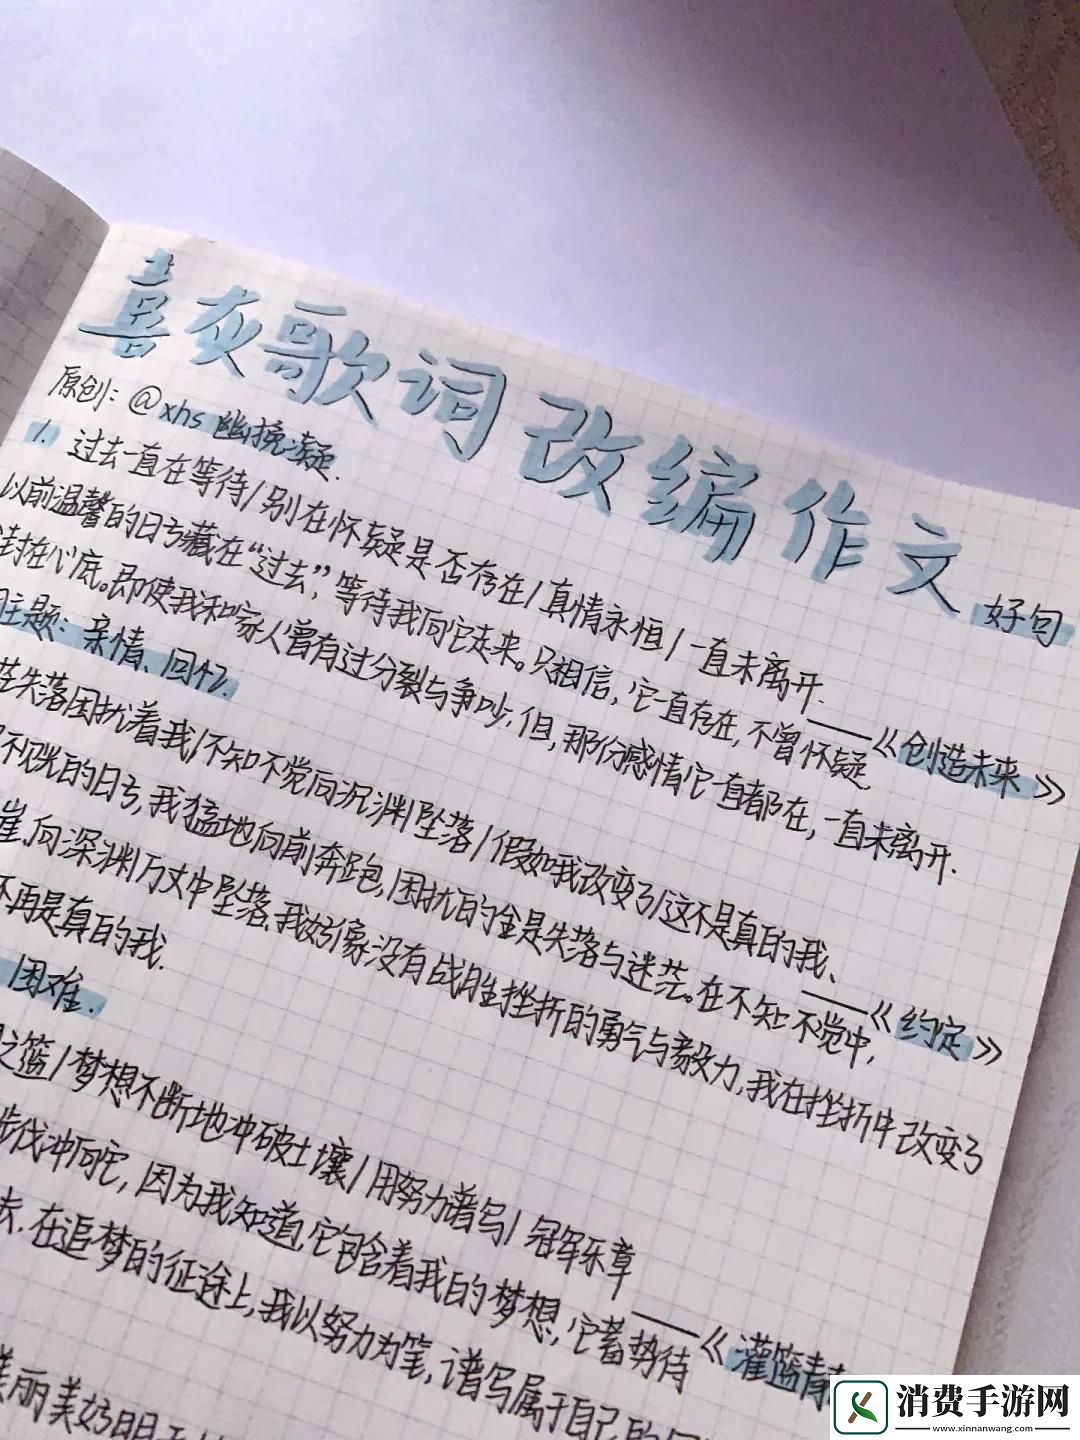 喜灰歌词改编作文好句
原创：@xhs 幽挽凝.
1. 过去一直在等待/别在怀疑是否存在/真情永恒/一直未离开.
——《创造未来》
以前温馨的日子藏在“过去”,等待我向它走来。只相信,它一直存在,不曾怀疑
封在心底。即使我和家人曾有过分裂与争吵.但,那份感情它一直都在,一直未离开.
主题：亲情、回忆.
失落困扰着我/不知不觉向沉渊坠落/假如我改变了/这不是真的我、
——《约定》
不顺的日子,我猛地向前奔跑,困扰的全是失落与迷茫。在不知不觉中,
崖,向深渊万丈中坠落.我好像没有战胜挫折的勇气与毅力,我在挫折中改变了
不再是真的我.
困难.
之篮/梦想不断地冲破土壤/用努力谱写/冠军乐章
——《灌篮青
步伐冲向它,因为我知道,它包含着我的梦想,它蓄势待
去.在追梦的征途上,我以努力为笔,谱写属于自己的
美丽美好明天
消费手游网
www.xinnanwang.com